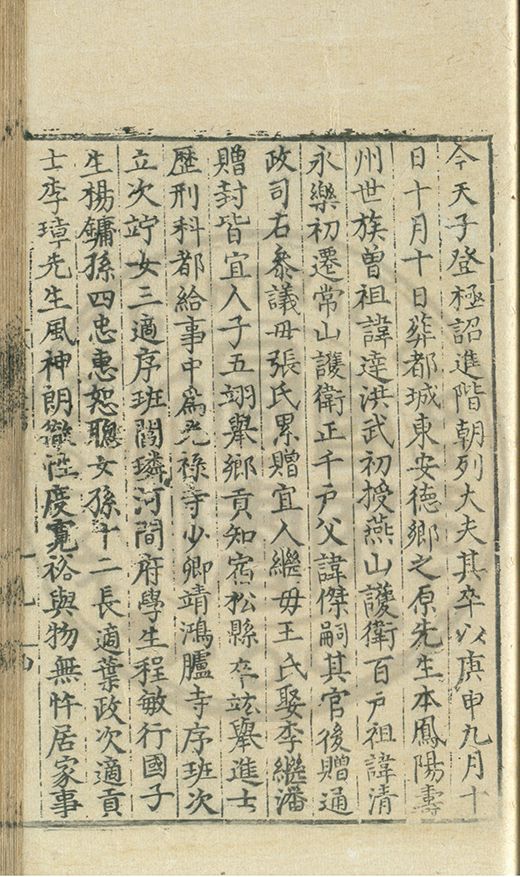 今天子登極詔進階朝列大夫其卒以庚申九月十
日十月十日葬都城東安德鄉之原先生本鳳陽壽
州世族曽祖諱達洪武初授燕山護衛百户祖諱清
永樂初遷常山護衛正千户父諱傑嗣其官後贈通
政司右叅議母張氏累贈宜人繼母王氏娶李繼潘
贈封皆宜人子五翊舉鄉貢知宿松縣卒竑舉進士
歷刑科都給事中爲光禄寺少卿靖鴻臚寺序班次
立次竚女三適序班閻璘河間府學生程敏行國子
生楊鏞孫四忠惠恕聰女孫十二長適葉政次適貢
士李璋先生風神朗徹性度寬裕與物無忤居家事